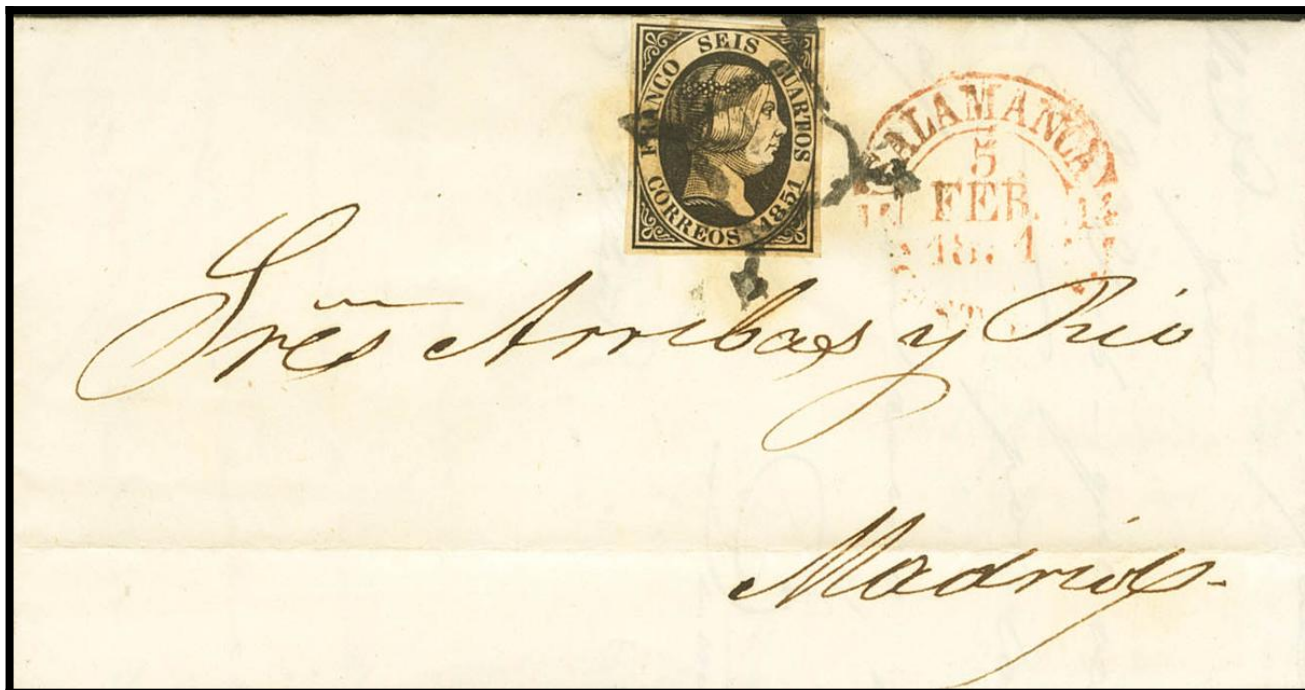 FRANCO SEIS CUARTOS
CORREOS 1851
SALAMANCA
5
FEB.
Sres Arribas y Pio
Madrid.